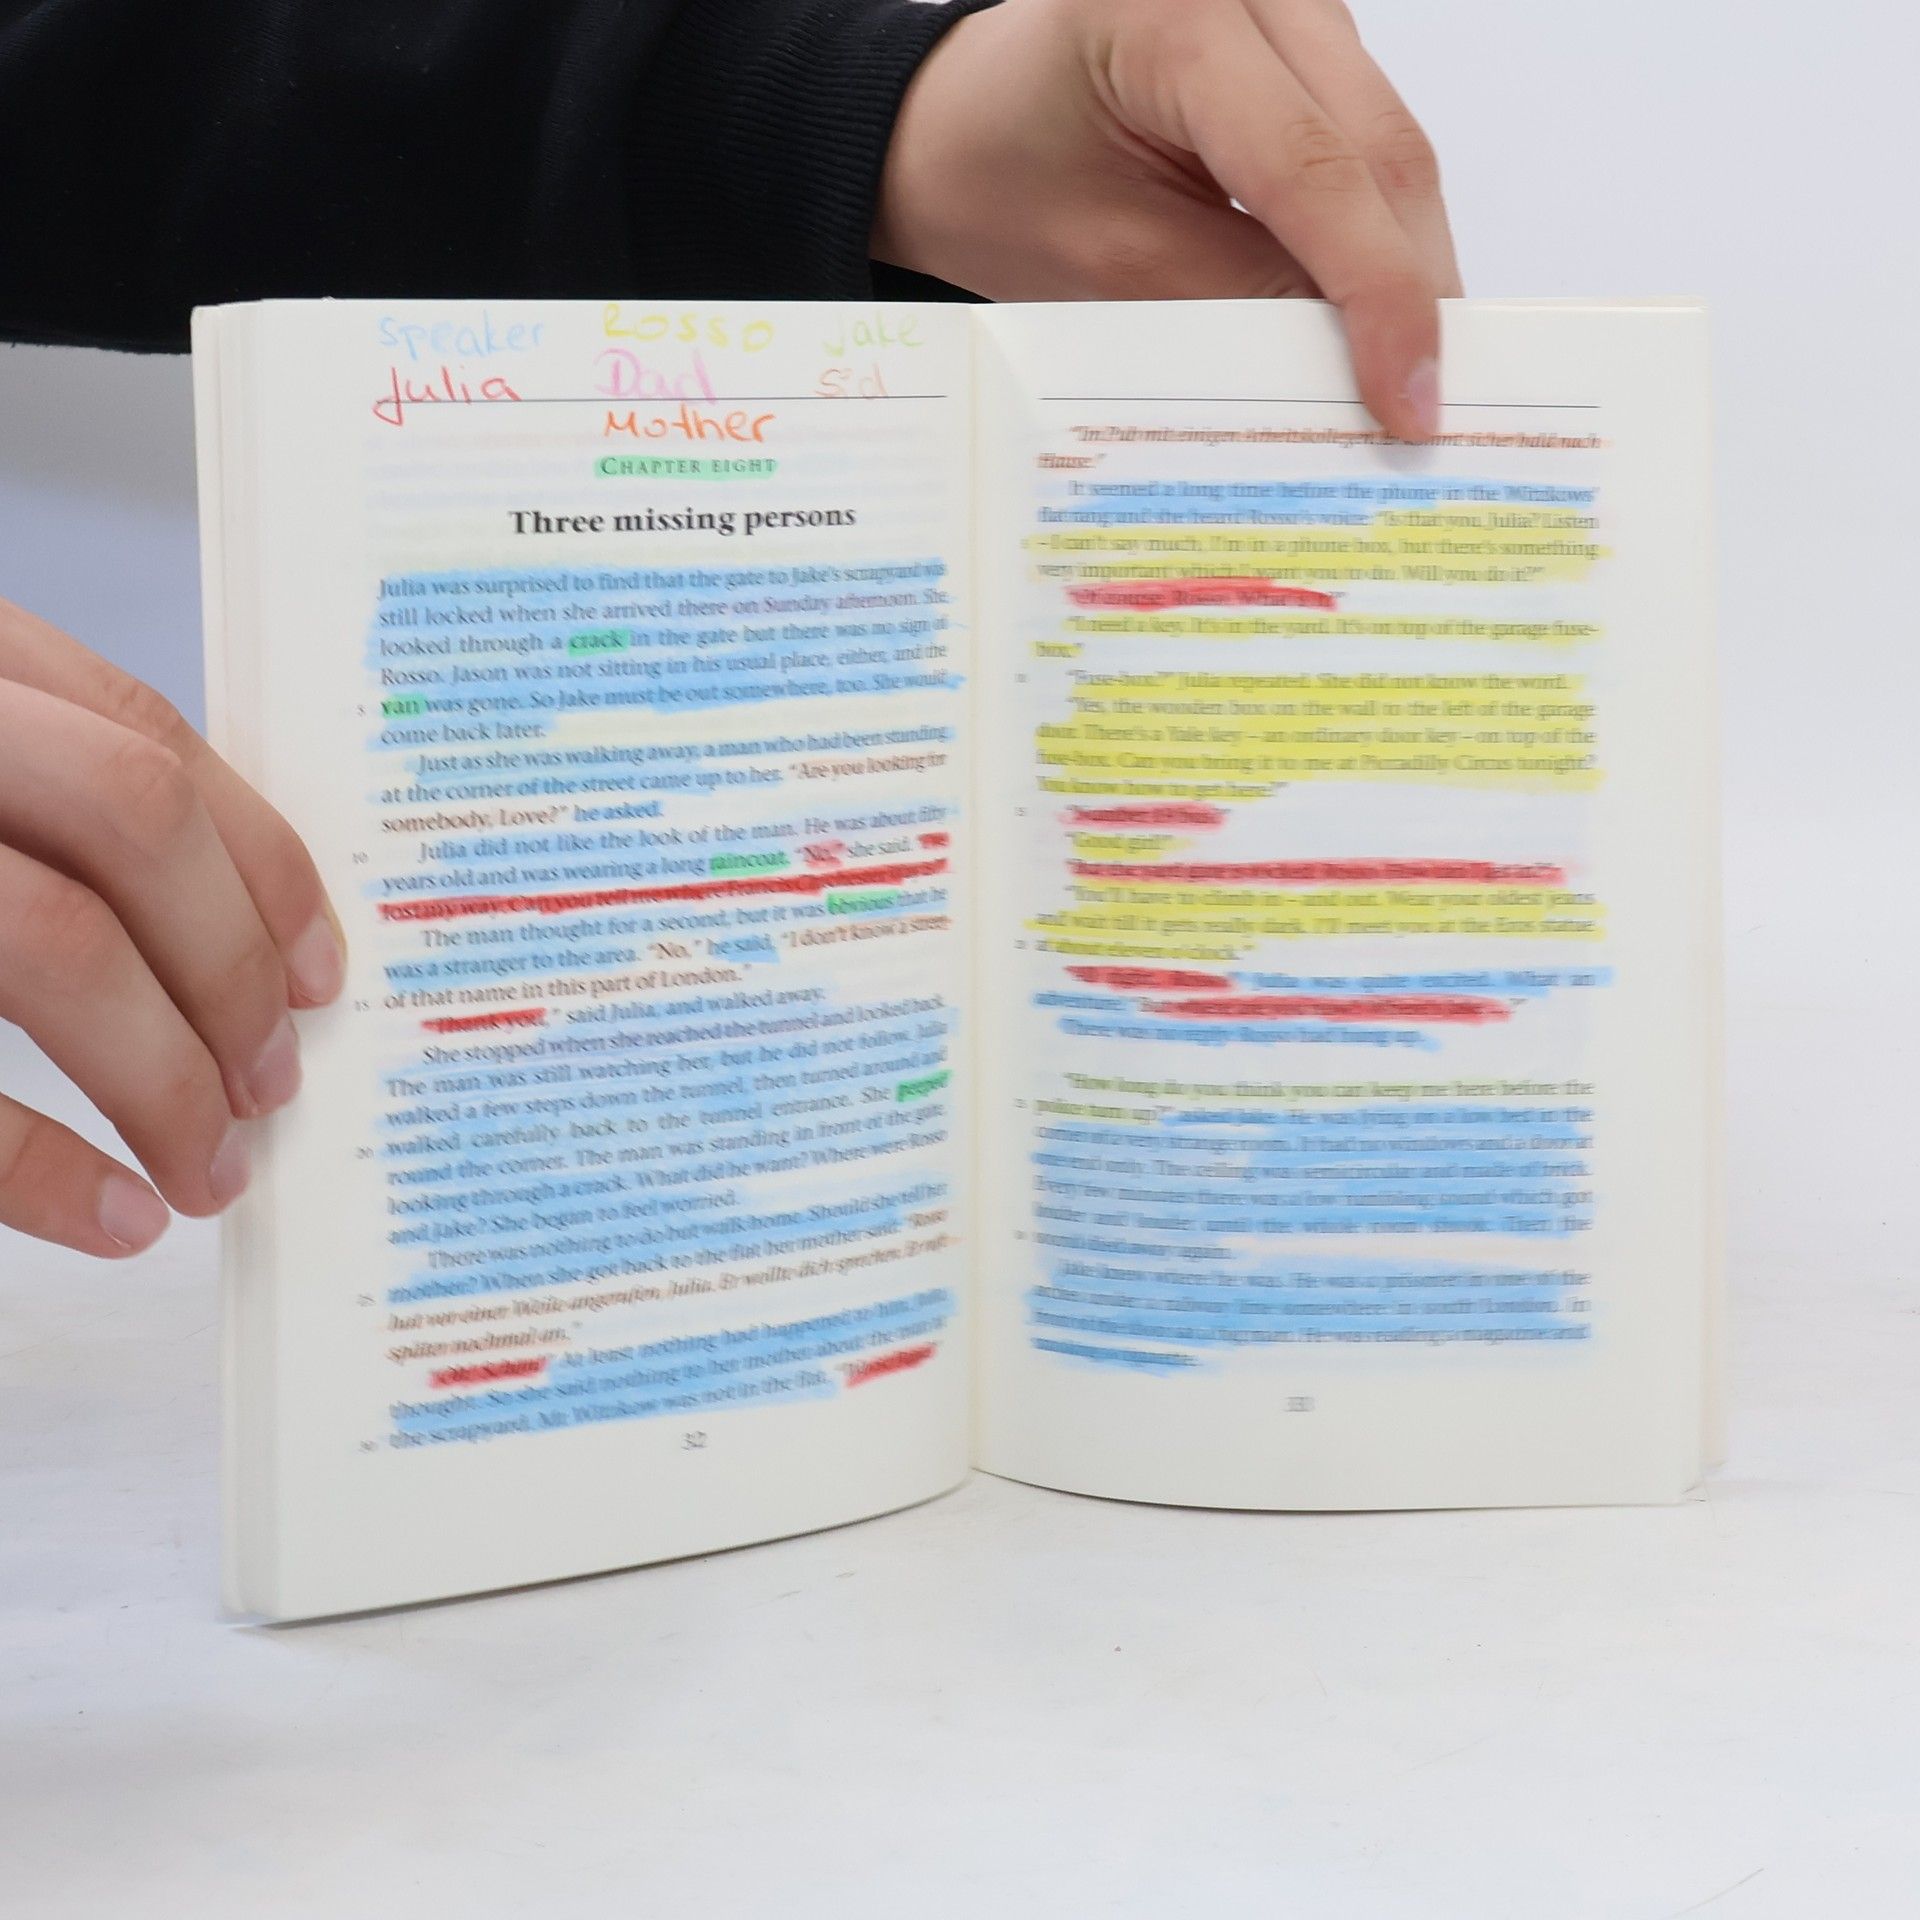 speaker Rosso Jake
Julia Dad Sid
Mother
CHAPTER EIGHT
Three missing persons
Julia was surprised to find that the gate to Jake's scrapyard was
still locked when she arrived there on Sunday afternoon. She
looked through a crack in the gate but there was no sign of
Rosso. Jason was not sitting in his usual place, either, and the
5 van was gone. So Jake must be out somewhere, too. She would
come back later.
Just as she was walking away, a man who had been standing
at the corner of the street came up to her. "Are you looking for
somebody, Love?" he asked.
10 Julia did not like the look of the man. He was about fifty
years old and was wearing a long raincoat. "No," she said. "I've
lost my way. Can you tell me where Francis
The man thought for a second, but it was obvious that he
was a stranger to the area. "No," he said, "I don't know a street
15 of that name in this part of London."
"Thank you," said Julia, and walked away.
She stopped when she reached the tunnel and looked back.
The man was still watching her, but he did not follow. Julia
walked a few steps down the tunnel, then turned around and
20 walked carefully back to the tunnel entrance. She peeped
round the corner. The man was standing in front of the gate,
looking through a crack. What did he want? Where were Rosso
and Jake? She began to feel worried.
There was nothing to do but walk home. Should she tell her
25 mother? When she got back to the flat her mother said: "Rosso
hat vor einer Weile angerufen, Julia. Er wollte dich sprechen. Er ruft
später nochmal an."
"Oh! Schön!" At least nothing had happened to him, Julia
thought. So she said nothing to her mother about the man at
30 the scrapyard. Mr Witzkow was not in the flat.
32
"Im Pub mit einigen Arbeitskollegen. Er kommt sicher bald nach
Hause."
It seemed a long time before the phone in the Witzkows'
flat rang and she heard Rosso's voice: "Is that you, Julia? Listen
– I can't say much, I'm in a phone box, but there's something
very important which I want you to do. Will you do it?"
"Of course, Rosso. What is it?"
"I need a key. It's in the yard. It's on top of the garage fuse-
box."
"Fuse-box?" Julia repeated. She did not know the word.
"Yes, the wooden box on the wall to the left of the garage
door. There's a Yale key – an ordinary door key – on top of the
fuse-box. Can you bring it to me at Piccadilly Circus tonight?
You know how to get here?"
15 "Number 19 bus."
"Good girl!"
"But the yard gate is locked, Rosso. How can I get in?"
"You'll have to climb in – and out. Wear your oldest jeans
and wait till it gets really dark. I'll meet you at the Eros statue
at about eleven o'clock."
"All right, Rosso." Julia was quite excited. What an
adventure. "But where are you
There was no reply. Rosso had hung up.
"How long do you think you can keep me here before the
police turn up?" asked Jake. He was lying on a low bed in the
corner of a very strange room. It had no windows and a door at
one end only. The ceiling was semi-circular and made of brick.
Every few minutes there was a low rumbling sound which got
louder and louder until the whole room shook. Then the
sound died away again.
Jake knew where he was. He was a prisoner in one of the
arches under a railway line somewhere in south London. In
front of the door sat a man. He was reading a magazine and
33